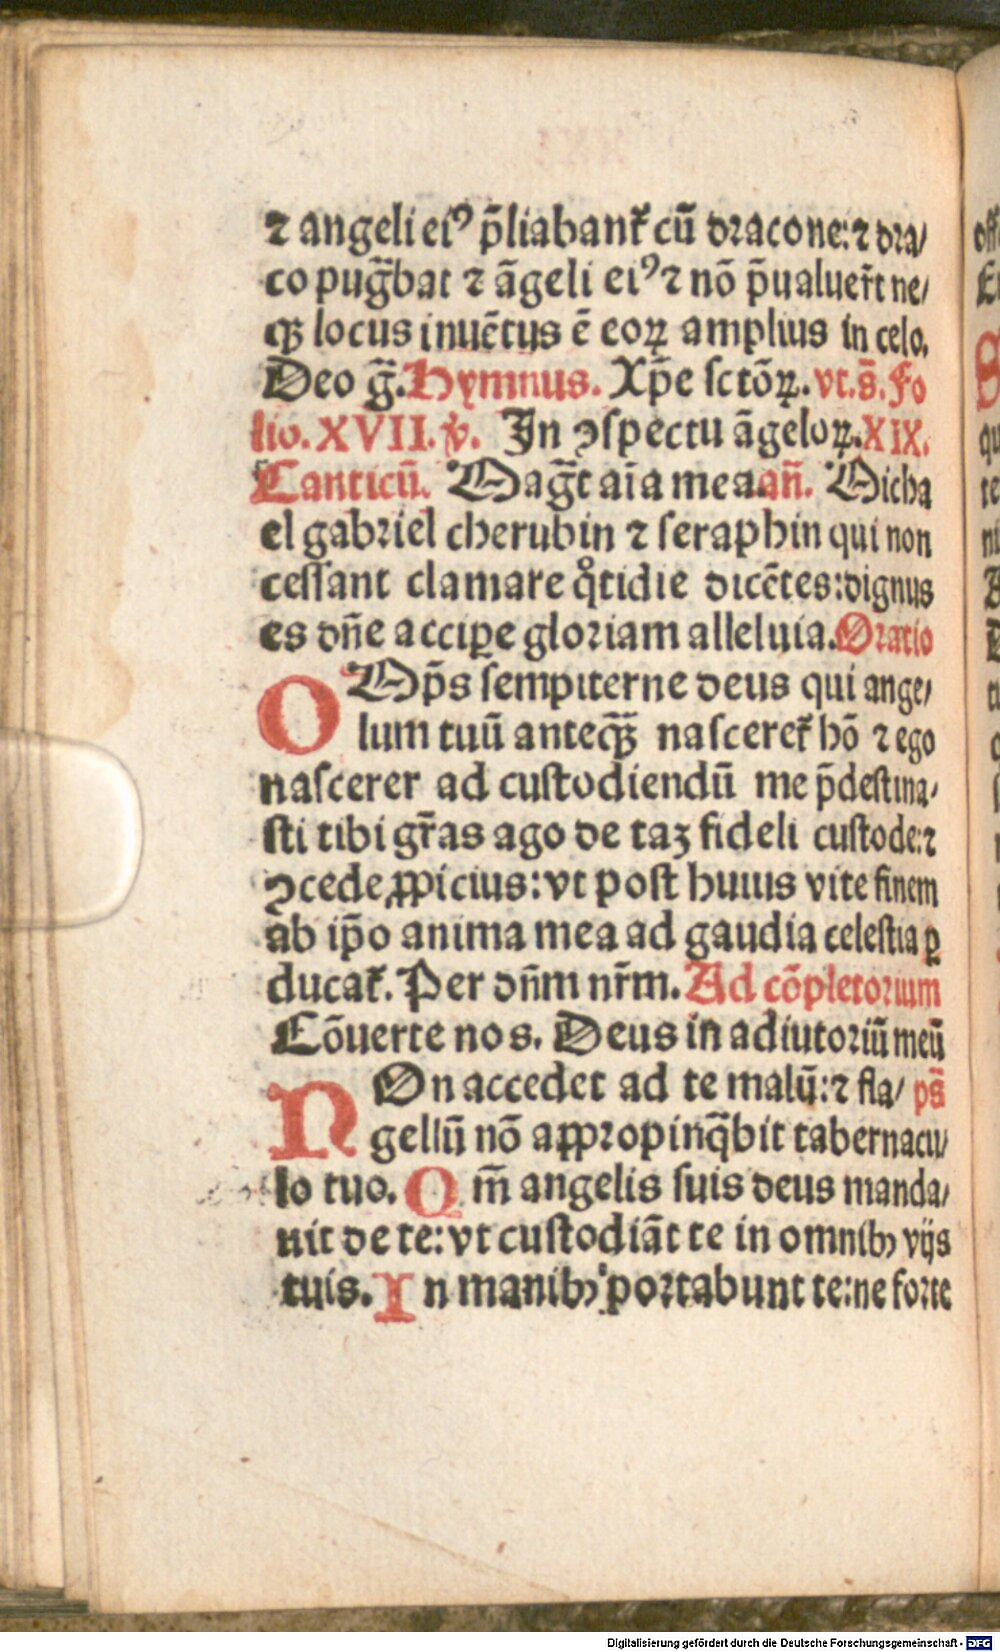 ⁊ angeli eiꝰ p̃liabant᷑ cũ dracone: ⁊ dra/
co pug̃bat ⁊ ãgeli eiꝰ ⁊ nõ p̃ualuer̃t ne/
qꝫ locus inuẽtus ẽ eoꝝ amplius in celo.
Deo g̃. Hymnus. Xp̃e sctõꝝ. vt. s̃. Fo
lio. XVII. v̾. In ꝯspectu ãgeloꝝ. XIX.
Canticũ. Mag̃t aĩa mea. añ. Micha
el gabriel cherubin ⁊ seraphin qui non
cessant clamare qͦtidie dicẽtes: dignus
es dñe accipe gloriam alleluia. Oratio
OMp̃s sempiterne deus qui ange/
lum tuũ anteqꝫ̃ nasceret᷑ hõ ⁊ ego
nascerer ad custodiendũ me p̃destina/
sti tibi gr̃as ago de taꝫ fideli custode: ⁊
ꝯcede ꝓpicius: vt post huius vite finem
ab ip̃o anima mea ad gaudia celestia ꝑ
ducat᷑. Per dñm nr̃m. Ad cõpletorium
Cõuerte nos. Deus in adiutoriũ meũ
NOn accedet ad te malũ: ⁊ fla/ ps̃
gellũ nõ appropinq̃bit tabernacu/
lo tuo. Qm̃ angelis suis deus manda/
uit de te: vt custodiãt te in omnibꝰ vijs
tuis. In manibꝰ portabunt te: ne forte
Digitalisierung gefördert durch die Deutsche Forschungsgemeinschaft - DFG